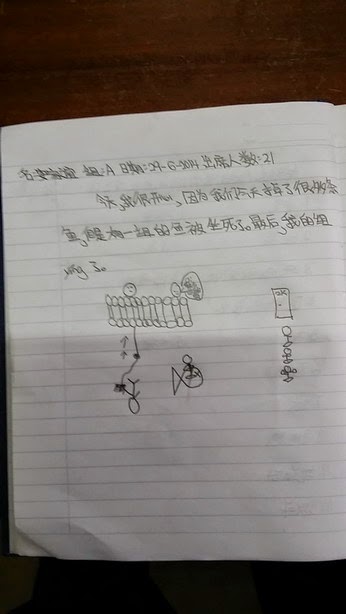 组:A 日期:29-6-2014 出席人数:21
今天,我很开心,因为我们今天了很多条
鱼,但是有一组的鱼被坐死了。最后,我的组
ying了。